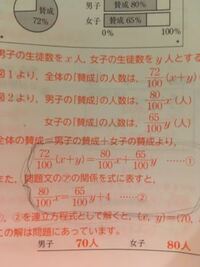 賛成
72%
男子 賛成 80%
女子 賛成 65%
0% 100%
男子の生徒数をx人, 女子の生徒数をy人とする
図1より, 全体の「賛成」の人数は, 72/100 (x+y)
図2より, 男子の「賛成」の人数は, 80/100 x(人)
女子の「賛成」の人数は, 65/100 y(人)
全体の賛成=男子の賛成+女子の賛成より,
72/100 (x+y)=80/100 x+65/100 y ……①
また, 問題文の の関係を式に表すと,
80/100 x=65/100 y+4 ……②
①, ②を連立方程式として解くと, (x, y)=(70,
この解は問題にあっています。
男子 70人 女子 80人